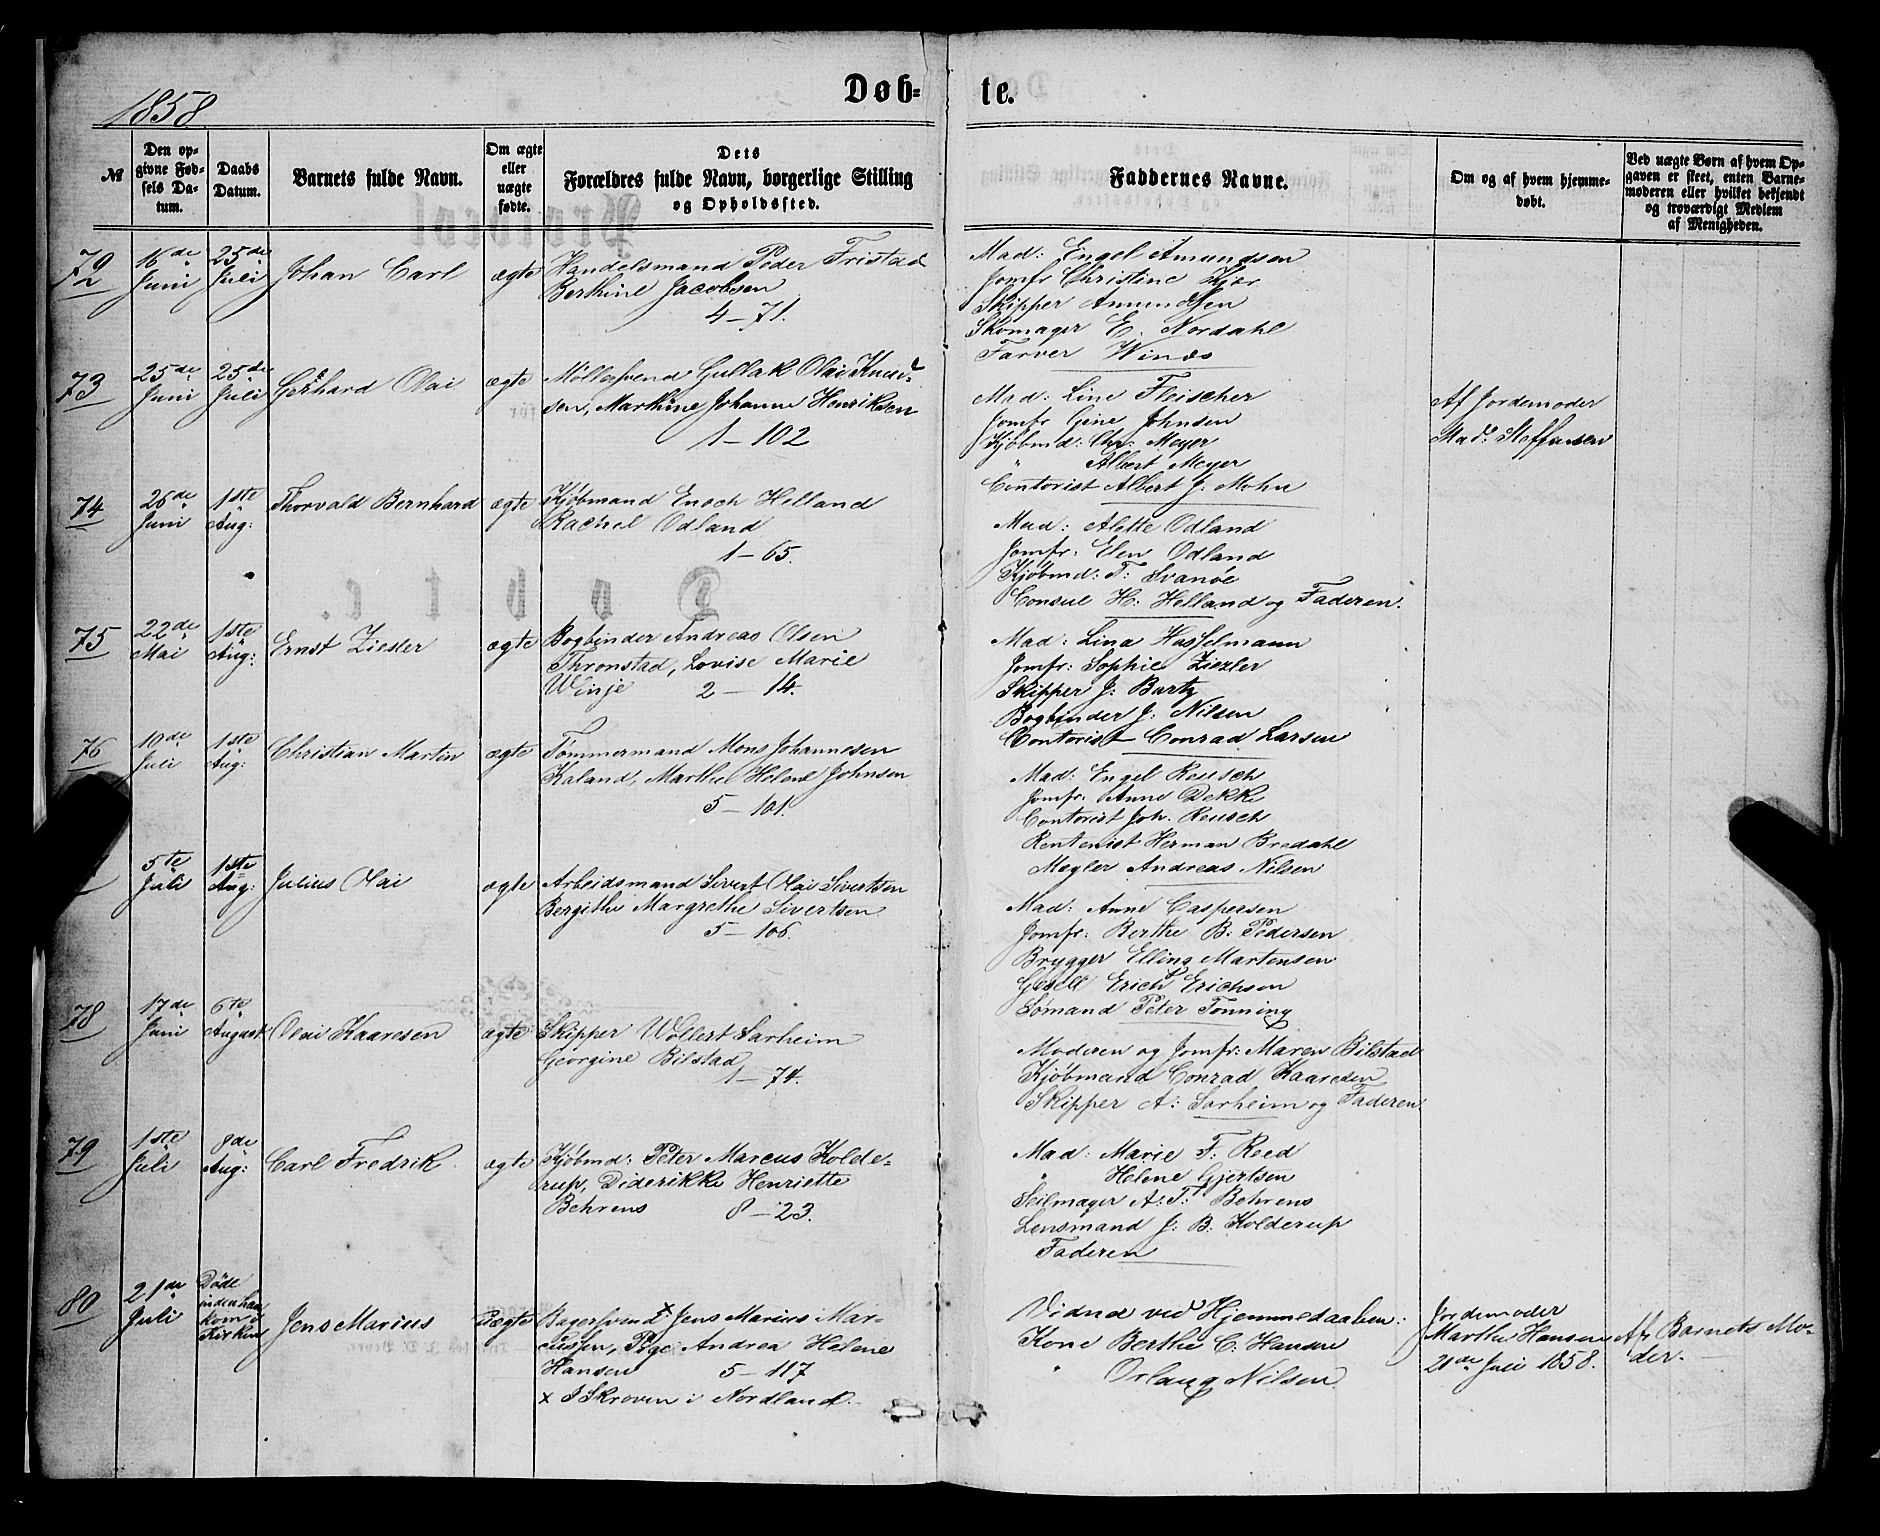 1858
Døb-
te.
№
Den op-
givne Fød-
sels Da-
tum.
Daabs
Datum.
Barnets fulde Navn.
Om ægte
eller
uægte
fødte.
Dets
Forældres fulde Navn, borgerlige Stilling
og Opholdssted.
Faddernes Navne.
Om og af hvem hjemme-
døbt.
Ved uægte Børn af hvem Op-
gaven er skeet, enten Barne-
moderen eller hvilket bekjendt
og troværdigt Medlem
af Menigheden.
72
16de
Juni
25de
Juli
Johan Carl
ægte
Handelsmand Peder Fristad
Berthine Jacobsen
4–71.
Mad: Engel Amundsen
Jomfr Christine Kjær
Skipper Amundsen
Skomager E. Nordahl
Farver Winds
73
25de
Juni
25de
Juli
Gerhard Olai
ægte
Möllersvend Gullak Olai Knud-
sen, Marthine Johanne Henriksen
1–102
Mad: Line Fleischer
Jomfr Gine Johnsen
Kjöbmd: Chr. Meyer
" Albert Meyer
Contorist Albert J. Mohn
Af Jordemoder
Mad. Steffensen
74
26de
Juni
1ste
Aug:
Thorvald Bernhard
ægte
Kjöbmand Enoch Helland
Rachel Odland
1–65.
Mad: Alette Odland
Jomfr: Elen Odland
Kjöbmd: T: Svanöe
Consul H: Helland og Faderen.
75
22de
Mai
1ste
Aug:
Ernst Ziesler
ægte
Bogbinder Andreas Olsen
Thronstad, Lovise Marie
Winje 2–14.
Mad: Lina Hasselmann
Jomfr: Sophie Ziezler
Skipper J: Bartz
Bogbinder J. Nilsen
Contorist Conrad Larsen
76
10de
Juli
1ste
Aug:
Christian Martin
ægte
Tömmermand Mons Johannesen
Kaland, Marthe Helene Johnsen
5–101.
Mad: Engel Reusch
Jomfr. Anne Dekke
Contorist Joh. Reusch
Rentenist Herman Bredahl
Megler Andreas Nilsen
5te
Juli
1ste
Aug:
Julius Olai
ægte
Arbeidsmand Sivert Olai Sivertsen
Bergithe Margrethe Sivertsen
5–106.
Mad: Anne Caspersen
Jomfr: Berthe B. Pedersen
Brygger Elling Martensen
Gesell Erich Erichsen
Sømand Peter Tonning
78
17de
Juni
6te
August
Olai Kaaresen
ægte
Skipper Wollert Sarheim
Georgine Bilstad
1–74.
Moderen og Jomfr: Maren Bilstad
Kjöbmand Conrad Kaaresen
Skipper A: Sarheim og Faderen
79
1ste
Juli
8de
Aug:
Carl Fredrik
ægte
Kjöbmd: Peter Marcus Kolde-
rup, Diderikke Henriette
Behrens 8–23.
Mad: Marie F. Reed
" Helene Gjertsen
Seilmager A. T. Behrens
Lensmand J. B. Kolderup
Faderen
80
21de
Juli
Döde
inden han
kom i
Kirken
Jens Marius
uægte
Bagersvend x Jens Marius Mar-
cussen, Pige Andrea Helene
Hansen 5–117
x I Skroven i Nordland.
Vidne ved Hjemmedaaben:
Kone Berthe C. Hansen
" Orlaug Nilsen
Jordemoder
Marthe Hansen
21de Juli 1858.
Af Barnets Mo-
der.